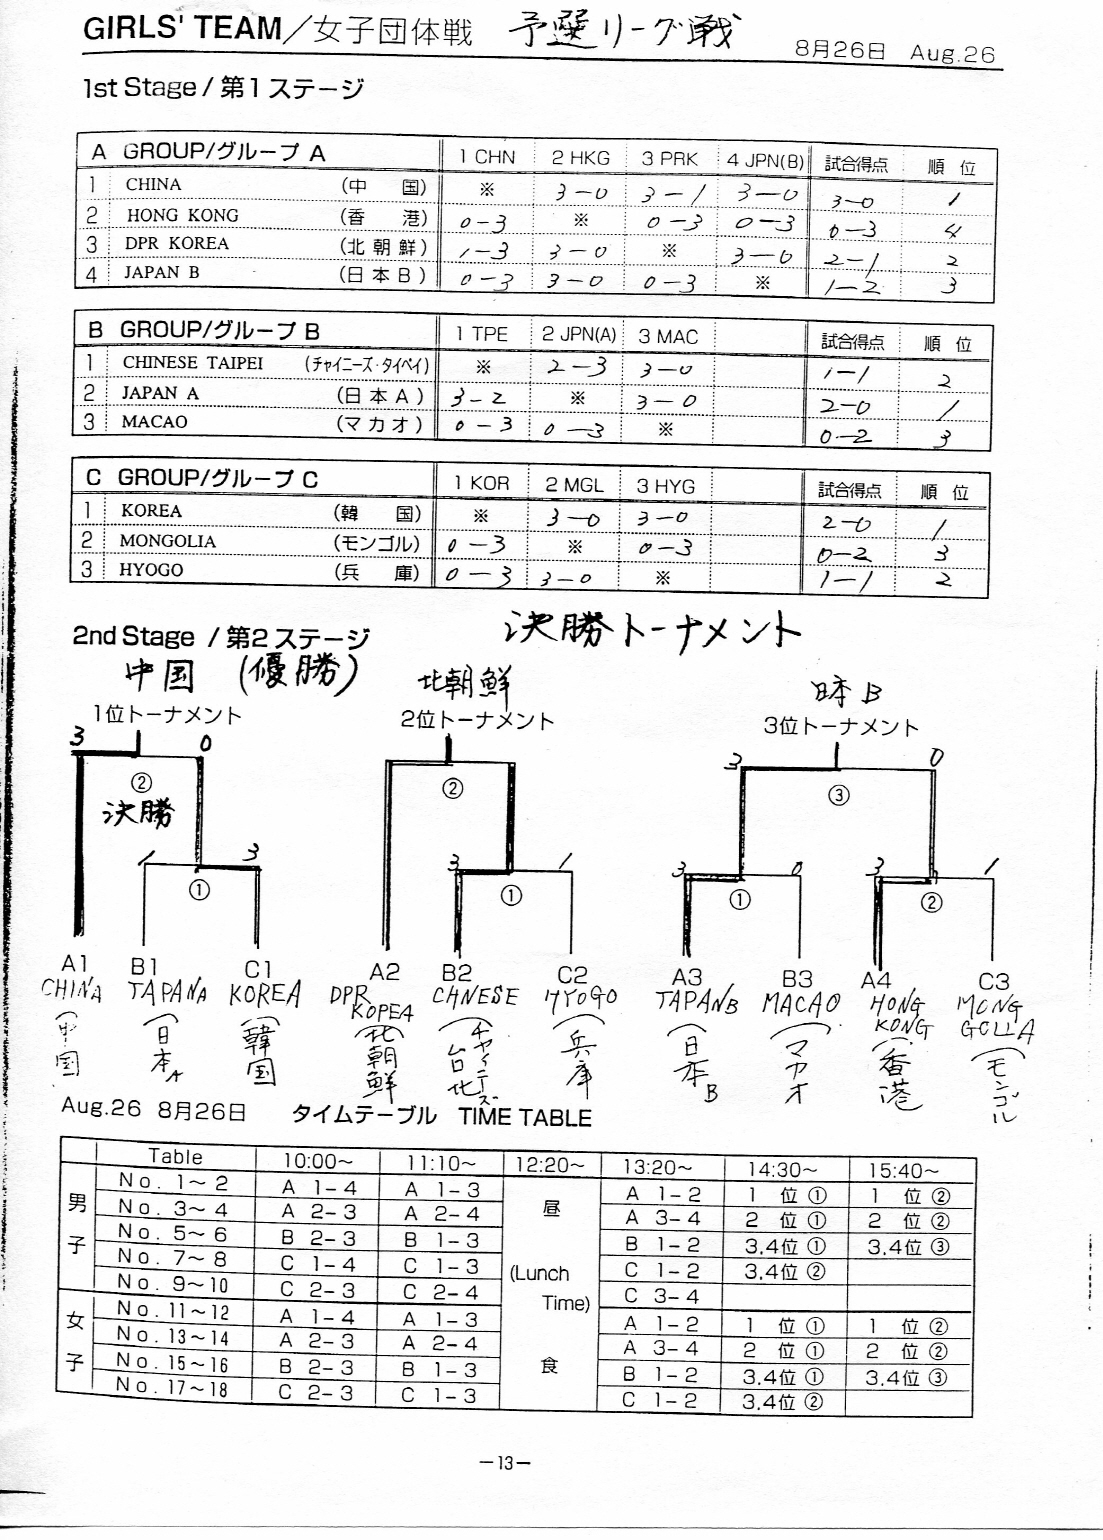 GIRLS' TEAM/女子団体戦 予選リーグ戦 8月26日 Aug.26
1st Stage / 第1ステージ
A GROUP/グループ A 1 CHN 2 HKG 3 PRK 4 JPN(B) 試合得点 順位
1 CHINA (中国) ※ 3-0 3-1 3-0 3-0 1
2 HONG KONG (香港) 0-3 ※ 0-3 0-3 0-3 4
3 DPR KOREA (北朝鮮) 1-3 3-0 ※ 3-0 2-1 2
4 JAPAN B (日本B) 0-3 3-0 0-3 ※ 1-2 3
B GROUP/グループ B 1 TPE 2 JPN(A) 3 MAC 試合得点 順位
1 CHINESE TAIPEI (チャイニーズ・タイペイ) ※ 2-3 3-0 1-1 2
2 JAPAN A (日本A) 3-2 ※ 3-0 2-0 1
3 MACAO (マカオ) 0-3 0-3 ※ 0-2 3
C GROUP/グループ C 1 KOR 2 MGL 3 HYG 試合得点 順位
1 KOREA (韓国) ※ 3-0 3-0 2-0 1
2 MONGOLIA (モンゴル) 0-3 ※ 0-3 0-2 3
3 HYOGO (兵庫) 0-3 3-0 ※ 1-1 2
2nd Stage / 第2ステージ 決勝トーナメント
中国 (優勝) 北朝鮮 日本B
1位トーナメント 2位トーナメント 3位トーナメント
3 0 3 0
② ② ③
決勝
1 3 3 1 3 0 3 1
① ① ① ②
A1 B1 C1 A2 B2 C2 A3 B3 A4 C3
CHINA JAPAN A KOREA DPR KOPEA CHNESE HYOGO JAPAN B MACAO HONG KONG MONG GOLLA
(中国 (日本A (韓国 (北朝鮮 (チャイニーズ台北 (兵庫 (日本B (マカオ (香港 (モンゴル
Aug.26 8月26日 タイムテーブル TIME TABLE
Table 10:00~ 11:10~ 12:20~ 13:20~ 14:30~ 15:40~
男子 No. 1~2 A 1-4 A 1-3 昼 A 1-2 1位① 1位②
No. 3~4 A 2-3 A 2-4 A 3-4 2位① 2位②
No. 5~6 B 2-3 B 1-3 B 1-2 3.4位① 3.4位③
No. 7~8 C 1-4 C 1-3 (Lunch C 1-2 3.4位②
No. 9~10 C 2-3 C 2-4 Time) C 3-4
女子 No. 11~12 A 1-4 A 1-3 A 1-2 1位① 1位②
No. 13~14 A 2-3 A 2-4 食 A 3-4 2位① 2位②
No. 15~16 B 2-3 B 1-3 B 1-2 3.4位① 3.4位③
No. 17~18 C 2-3 C 1-3 C 1-2 3.4位②
-13-